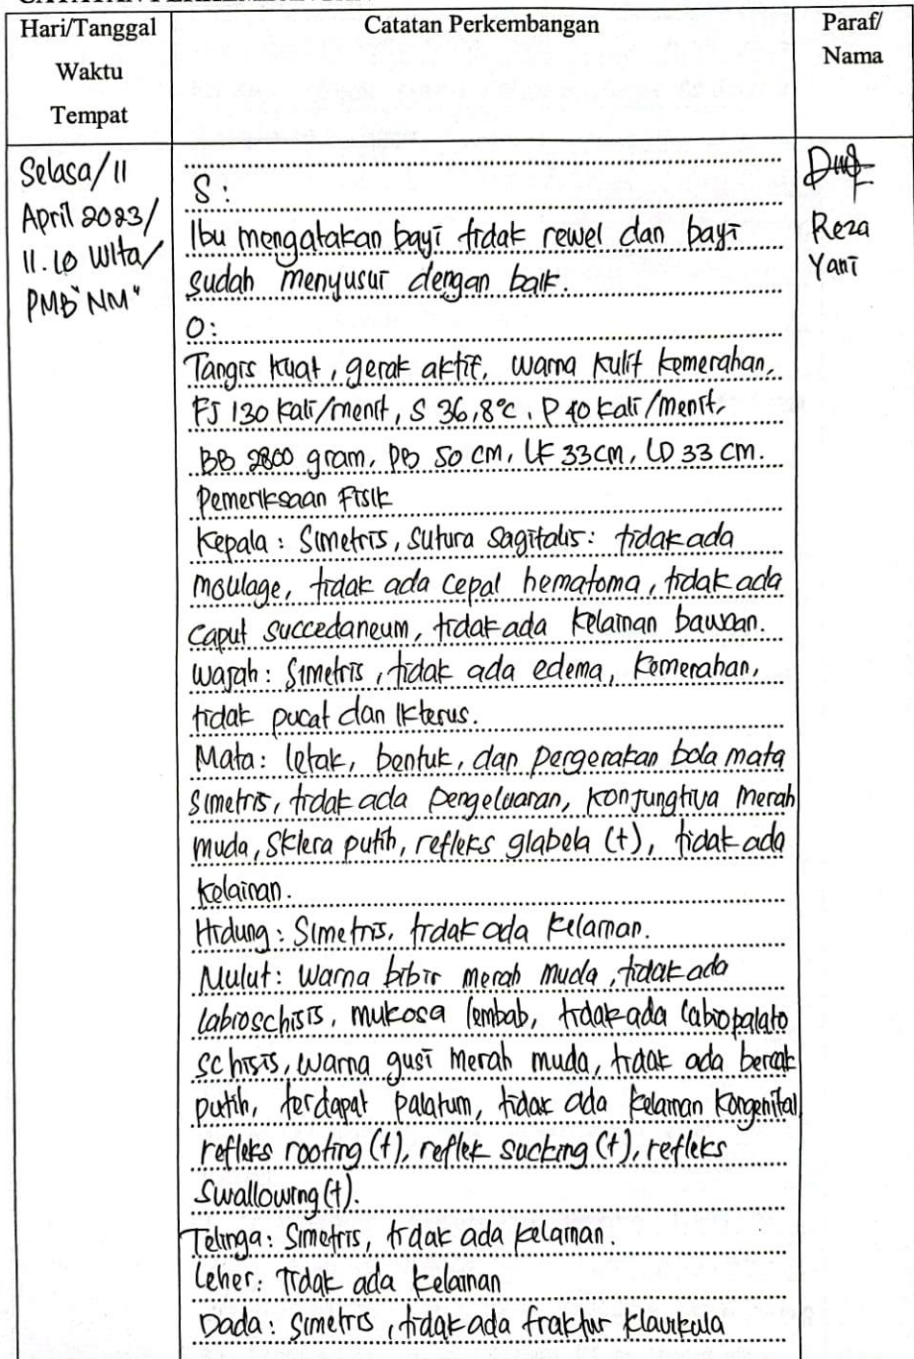 Hari/Tanggal
Waktu
Tempat
Catatan Perkembangan
Paraf/
Nama
Selasa/11
April 2023/
11.10 Wita/
PMB "NM"
S :
Ibu mengatakan bayi tidak rewel dan bayi
sudah menyusui dengan baik.
O :
Tangis kuat, gerak aktif, warna kulit kemerahan,
FJ 130 kali/menit, S 36,8°c, P 40 kali/menit,
BB 2800 gram, PB 50 cm, LK 33 cm, LD 33 cm.
Pemeriksaan Fisik
Kepala : Simetris, sutura sagitalis: tidak ada
moulage, tidak ada cepal hematoma, tidak ada
caput succedaneum, tidak ada kelainan bawaan.
Wajah : Simetris, tidak ada edema, kemerahan,
tidak pucat dan ikterus.
Mata: letak, bentuk, dan pergerakan bola mata
simetris, tidak ada pengeluaran, konjungtiva merah
muda, sklera putih, refleks glabela (+), tidak ada
kelainan.
Hidung : Simetris, tidak ada kelainan.
Mulut: warna bibir merah muda, tidak ada
labioschisis, mukosa lembab, tidak ada labiopalato
schisis, warna gusi merah muda, tidak ada bercak
putih, terdapat palatum, tidak ada kelainan kongenital
refleks rooting (+), reflek sucking (+), refleks
swallowing (+).
Telinga: Simetris, tidak ada kelainan.
Leher: Tidak ada kelainan
Dada : simetris, tidak ada fraktur klavikula
Reza
Yani